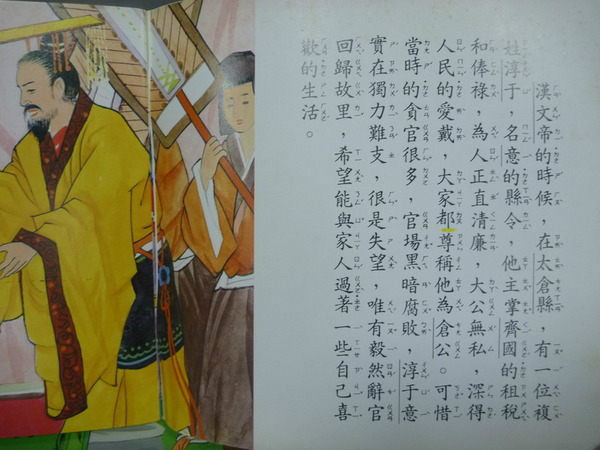 漢文帝的時候，在太倉縣，有一位複
姓淳于，名意的縣令，他主掌齊國的租稅
和俸祿，為人正直清廉，大公無私，深得
人民的愛戴，大家都尊稱他為倉公。可惜
當時的貪官很多，官場黑暗腐敗，淳于意
實在獨力難支，很是失望，唯有毅然辭官
回歸故里，希望能與家人過著一些自己喜
歡的生活。